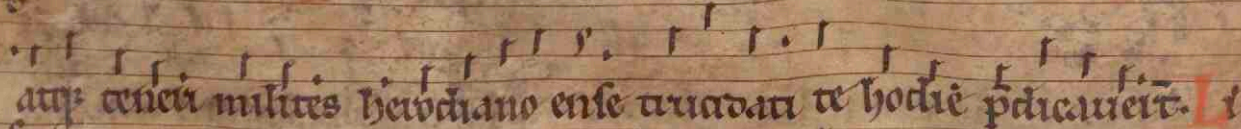 atq; teneri milites herodiano ense trucidati te hodie p̄dicauer̄t. Li